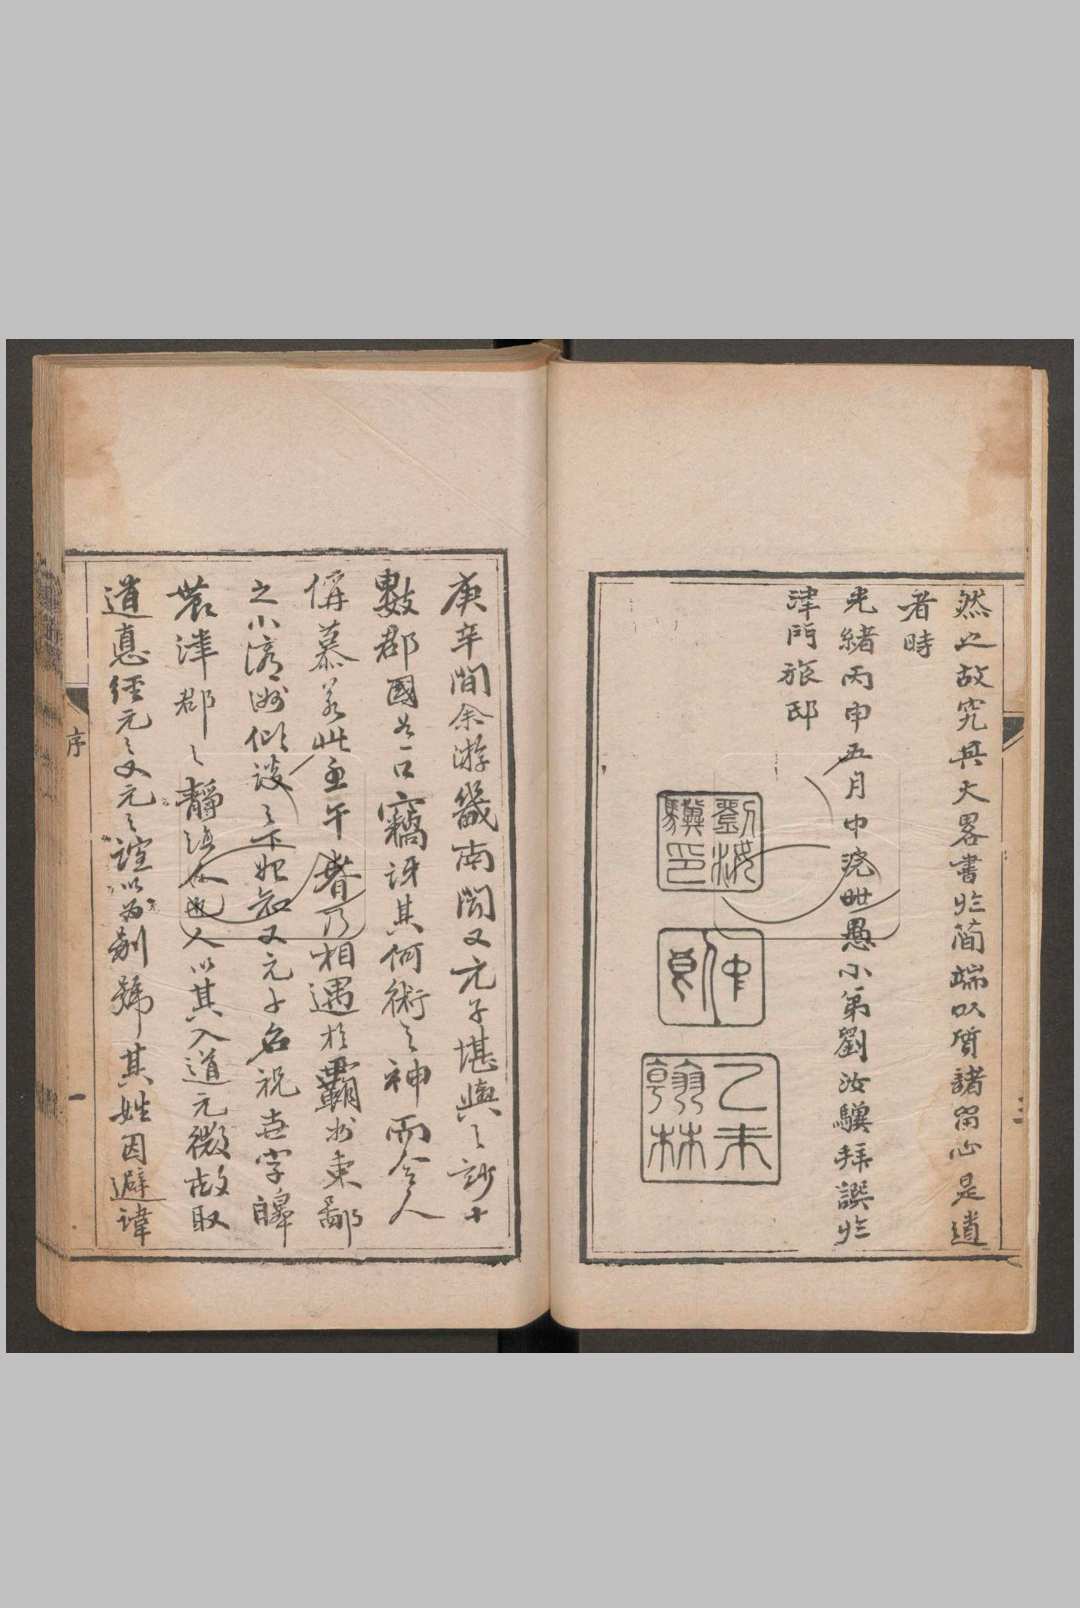 然之故究其大畧書於簡端以質諸留心是道
者時
光緒丙申五月中浣世愚小弟劉汝驥拜譔於
津門旅邸
劉汝驥印
仲良
乙未翰林
庚辛間余游畿南聞又元子堪輿之妙十
數郡國若一口竊訝其何術之神而令人
傾慕若此至午春乃相遇於霸州東鄙
之小 談之下始知又元子名祝垚字皞
農津郡之靜海人也人以其入道元微故取
道悳經元之又元之誼以為別號其姓因避諱
序